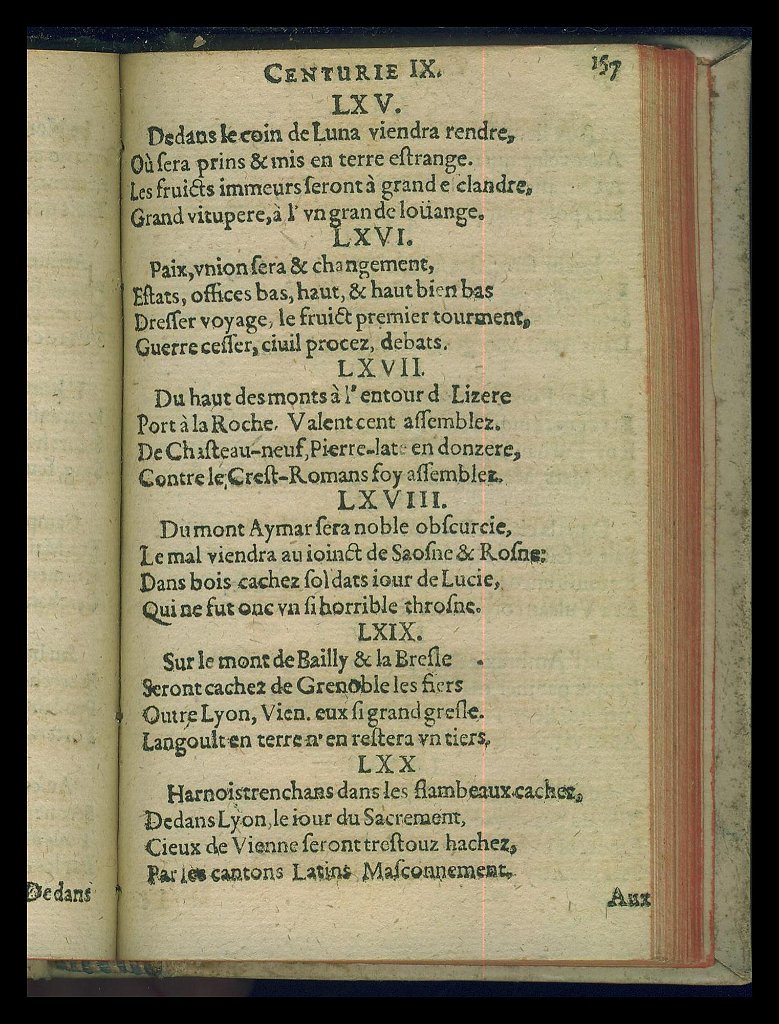 CENTURIE IX. 157
LXV.
Dedans le coin de Luna viendra rendre,
Où ſera prins & mis en terre eſtrange.
Les fruicts immeurs ſeront à grand e clandre,
Grand vitupere, à l' vn grande loüange.
LXVI.
Paix, vnion ſera & changement,
Eſtats, offices bas, haut, & haut bien bas
Dreſſer voyage, le fruict premier tourment,
Guerre ceſſer, ciuil procez, debats.
LXVII.
Du haut des monts à l' entour d Lizere
Port à la Roche. Valent cent aſſemblez.
De Chaſteau-neuf, Pierre-late en donzere,
Contre le Creſt-Romans foy aſſemblez.
LXVIII.
Du mont Aymar ſera noble obſcurcie,
Le mal viendra au ioinct de Saoſne & Roſne:
Dans bois cachez ſoldats iour de Lucie,
Qui ne fut onc vn ſi horrible throſne.
LXIX.
Sur le mont de Bailly & la Breſle .
Seront cachez de Grenoble les fiers
Outre Lyon, Vien. eux ſi grand greſle.
Langoult en terre n' en reſtera vn tiers.
LXX
Harnois trenchans dans les flambeaux cachez,
Dedans Lyon, le iour du Sacrement,
Cieux de Vienne ſeront treſtouz hachez,
Par les cantons Latins Maſconnement.
Dedans
Aux